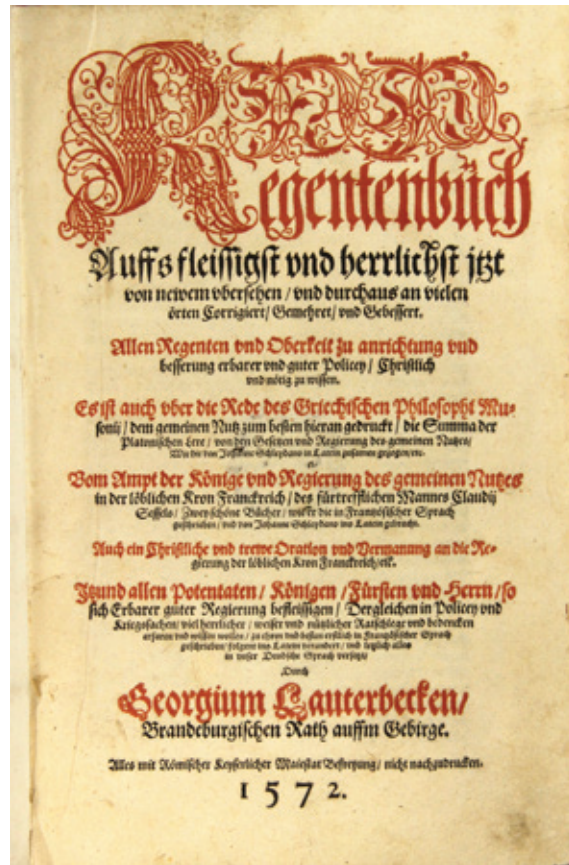 Regentenbuch
Auffs fleissigst vnd herrlichst jtzt
von newem vbersehen / vnd durchaus an vielen
örten Corrigiert / Gemehret / vnd Gebessert.
Allen Regenten vnd Oberkeit zu anrichtung vnd
besserung erbarer vnd guter Policey / Christlich
vnd nötig zu wissen.
Es ist auch vber die Rede des Griechischen Philosophi Mu-
sonij / dem gemeinen Nutz zum besten hieran gedruckt / die Summa der
Platonischen lere / von den Gesetzen vnd Regierung des gemeinen Nutzes /
Wie die von Johanne Schleydano in Latein zusamen gezogen / etc.
Vom Ampt der Könige vnd Regierung des gemeinen Nutzes
in der löblichen Kron Franckreich / des fürtrefflichen Mannes Claudij
Sessels / Zwey schöne Bücher / die in Frantzösischer Sprach
geschrieben / vnd von Johanne Schleydano ins Latein gebracht.
Auch ein Christliche vnd trewe Oration vnd Vermanung an die Re-
gierung der löblichen Kron Franckreich / etc.
Itzund allen Potentaten / Königen / Fürsten vnd Herrn / so
sich Erbarer guter Regierung befleissigen / Dergleichen in Policey vnd
Kriegssachen / viel herrlicher / weiser vnd nützlicher Ratschlege vnd bedencken
erfaren vnd wissen wollen / zu ehren vnd besten erstlich in Frantzösischer Sprach
geschrieben / folgens ins Latein verandert / vnd letzlich alles
in vnser Deudsche Sprach versetzt /
Durch
Georgium Lauterbecken /
Brandeburgischen Rath auffm Gebirge.
Alles mit Römischer Keyserlicher Maiestat Befreyung / nicht nachzudrucken.
1572.